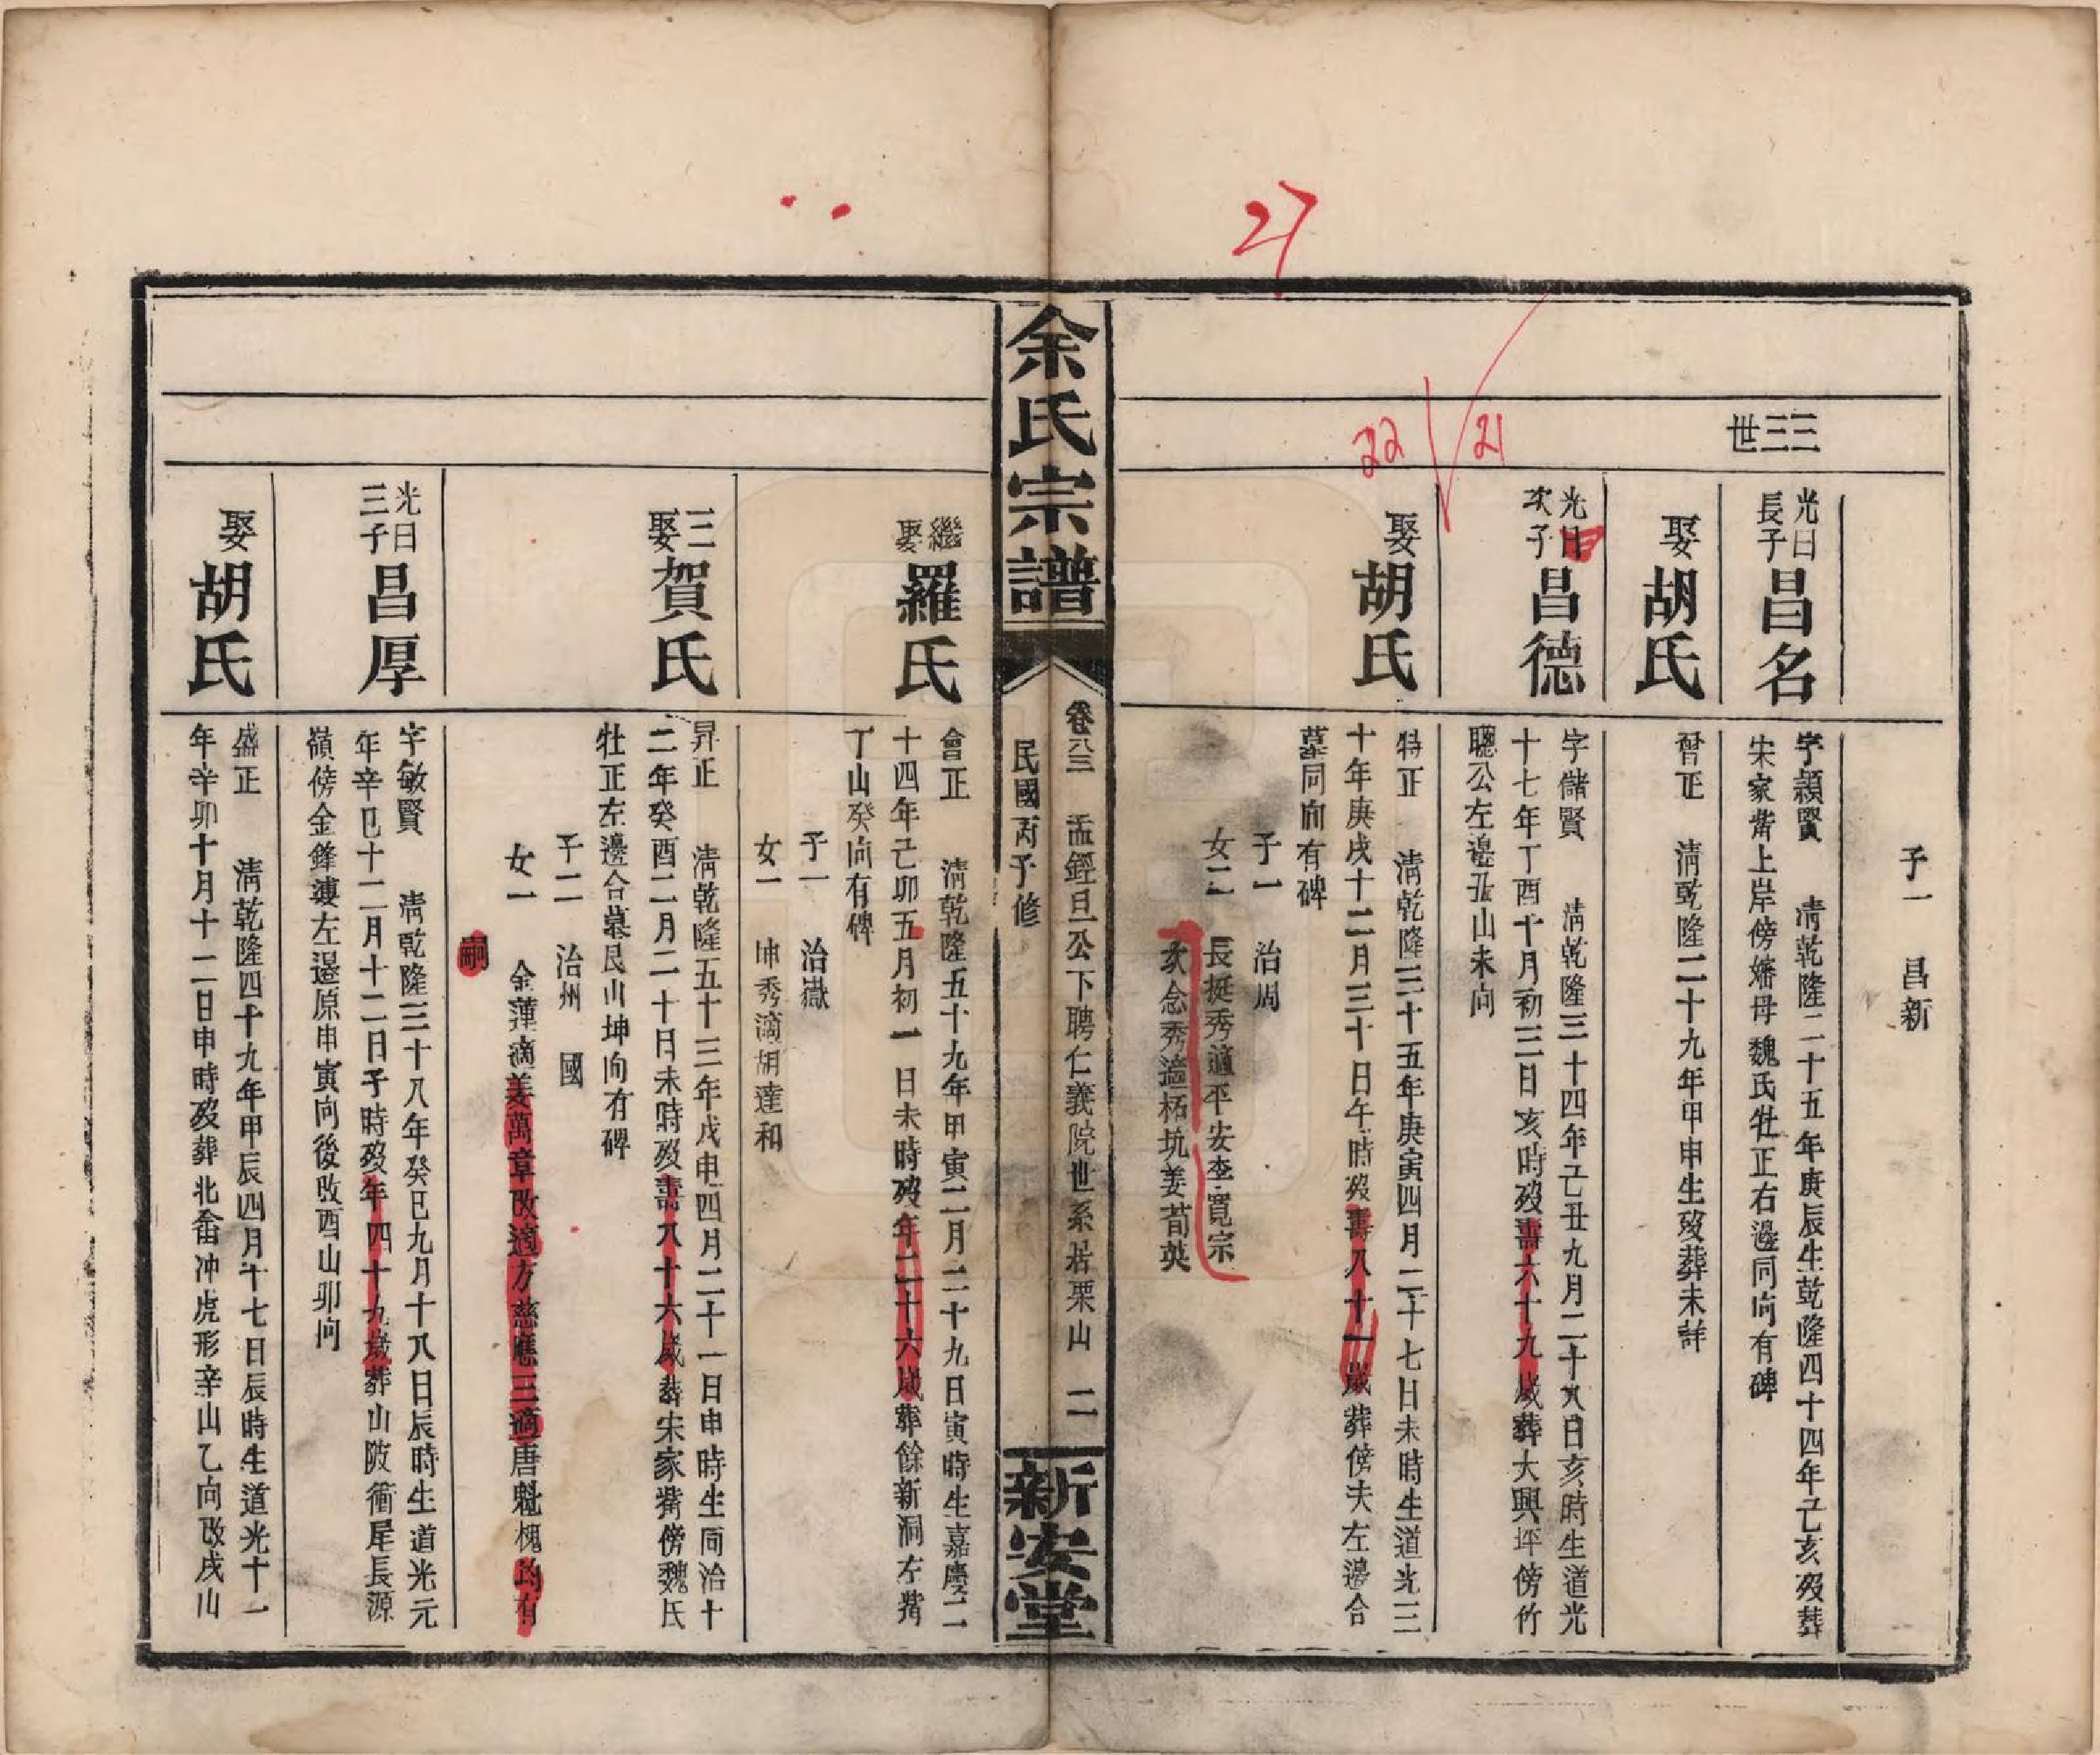 子一 昌新
三三世
光日長子 昌名
字穎賢 清乾隆二十五年庚辰生乾隆四十四年己亥歿葬
宋家嘴上岸傍嬸母魏氏牡正右邊同向有碑
娶 胡氏
晉正 清乾隆二十九年甲申生歿葬未詳
光日次子 昌德
字儲賢 清乾隆三十四年己丑九月二十八日亥時生道光
十七年丁酉十月初三日亥時歿壽六十九歲葬大興坪傍竹
聰公左邊丑山未向
娶 胡氏
特正 清乾隆三十五年庚寅四月二十七日未時生道光三
十年庚戌十二月三十日午時歿壽八十一歲葬傍夫左邊合
墓同向有碑
子一 治周
女二 長挺秀適平安李寬宗
次念秀適柘坑姜荀英
27
21
22
余氏宗譜
卷八三 孟經旦公下聘仁義院世系居栗山 二
民國丙子修
新安堂
繼娶 羅氏
會正 清乾隆五十九年甲寅二月二十九日寅時生嘉慶二
十四年己卯五月初一日未時歿年二十六歲葬餘新洞左嘴
丁山癸向有碑
子一 治嶽
女一 坤秀適胡達和
三娶 賀氏
昇正 清乾隆五十三年戊申四月二十一日申時生同治十
二年癸酉二月二十日未時歿壽八十六歲葬宋家嘴傍魏氏
牡正左邊合墓艮山坤向有碑
子二 治州 國
女一 金蓮適姜萬章改適方慈應三適唐魁槐均有
嗣
光日三子 昌厚
字敏賢 清乾隆三十八年癸巳九月十八日辰時生道光元
年辛巳十二月十二日子時歿年四十九歲葬山陂衝犀長源
嶺傍金鋒壊左邊原申寅向後改酉山卯向
娶 胡氏
盛正 清乾隆四十九年甲辰四月十七日辰時生道光十一
年辛卯十月十二日申時歿葬北畬冲虎形辛山乙向改戌山